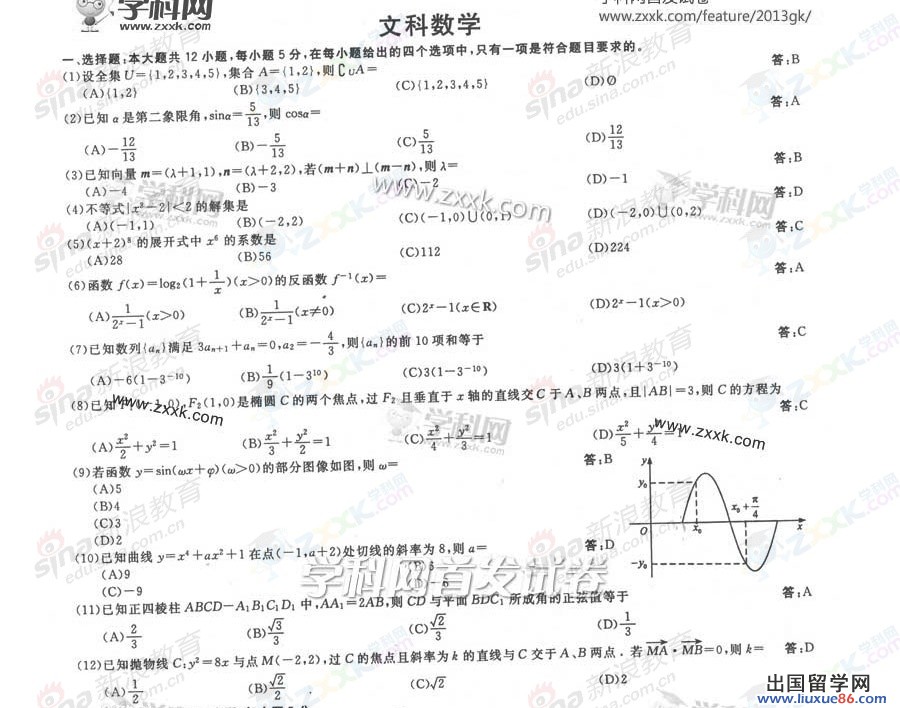 学科网
www.zxxk.com
www.zxxk.com/feature/2013gk/
文科数学
一、选择题:本大题共 12 小题,每小题 5 分,在每小题给出的四个选项中,只有一项是符合题目要求的。
(1)设全集 U={1,2,3,4,5},集合 A={1,2},则∁UA= 答:B
(A){1,2} (B){3,4,5} (C){1,2,3,4,5} (D)∅
(2)已知 α 是第二象限角,sinα=5/13,则 cosα= 答:A
(A)-12/13 (B)-5/13 (C)5/13 (D)12/13
(3)已知向量 m=(λ+1,1),n=(λ+2,2),若(m+n)⊥(m-n),则 λ= 答:B
(A)-4 (B)-3 (C)-2 (D)-1
(4)不等式|x²-2|<2 的解集是 答:D
(A)(-1,1) (B)(-2,2) (C)(-1,0)∪(0,1) (D)(-2,0)∪(0,2)
(5)(x+2)⁸ 的展开式中 x⁶ 的系数是 答:C
(A)28 (B)56 (C)112 (D)224
(6)函数 f(x)=log₂(1+1/x)(x>0)的反函数 f⁻¹(x)= 答:A
(A)1/(2ˣ-1)(x>0) (B)1/(2ˣ-1)(x≠0) (C)2ˣ-1(x∈R) (D)2ˣ-1(x>0)
(7)已知数列{aₙ}满足 3aₙ₊₁+aₙ=0,a₂=-4/3,则{aₙ}的前 10 项和等于 答:C
(A)-6(1-3⁻¹⁰) (B)1/9(1-3¹⁰) (C)3(1-3⁻¹⁰) (D)3(1+3⁻¹⁰)
(8)已知 F₁(-1,0),F₂(1,0)是椭圆 C 的两个焦点,过 F₂ 且垂直于 x 轴的直线交 C 于 A、B 两点,且|AB|=3,则 C 的方程为 答:C
(A)x²/2+y²=1 (B)x²/3+y²/2=1 (C)x²/4+y²/3=1 (D)x²/5+y²/4=1
(9)若函数 y=sin(ωx+φ)(ω>0)的部分图像如图,则 ω= 答:B
(A)5
(B)4
(C)3
(D)2
y
y₀
x₀+π/4
O
x₀
x
-y₀
(10)已知曲线 y=x⁴+ax²+1 在点(-1,a+2)处切线的斜率为 8,则 a= 答:D
(A)9 (B)6
(C)-9 (D)-6
(11)已知正四棱柱 ABCD-A₁B₁C₁D₁ 中,AA₁=2AB,则 CD 与平面 BDC₁ 所成角的正弦值等于 答:A
(A)2/3 (B)√3/3 (C)√2/3 (D)1/3
(12)已知抛物线 C:y²=8x 与点 M(-2,2),过 C 的焦点且斜率为 k 的直线与 C 交于 A、B 两点.若 MA·MB=0,则 k= 答:D
(A)1/2 (B)√2/2 (C)√2 (D)2
学科网首发试卷
www.zxxk.com
新浪教育
edu.sina.com.cn
出国留学网
www.liuxue86.com